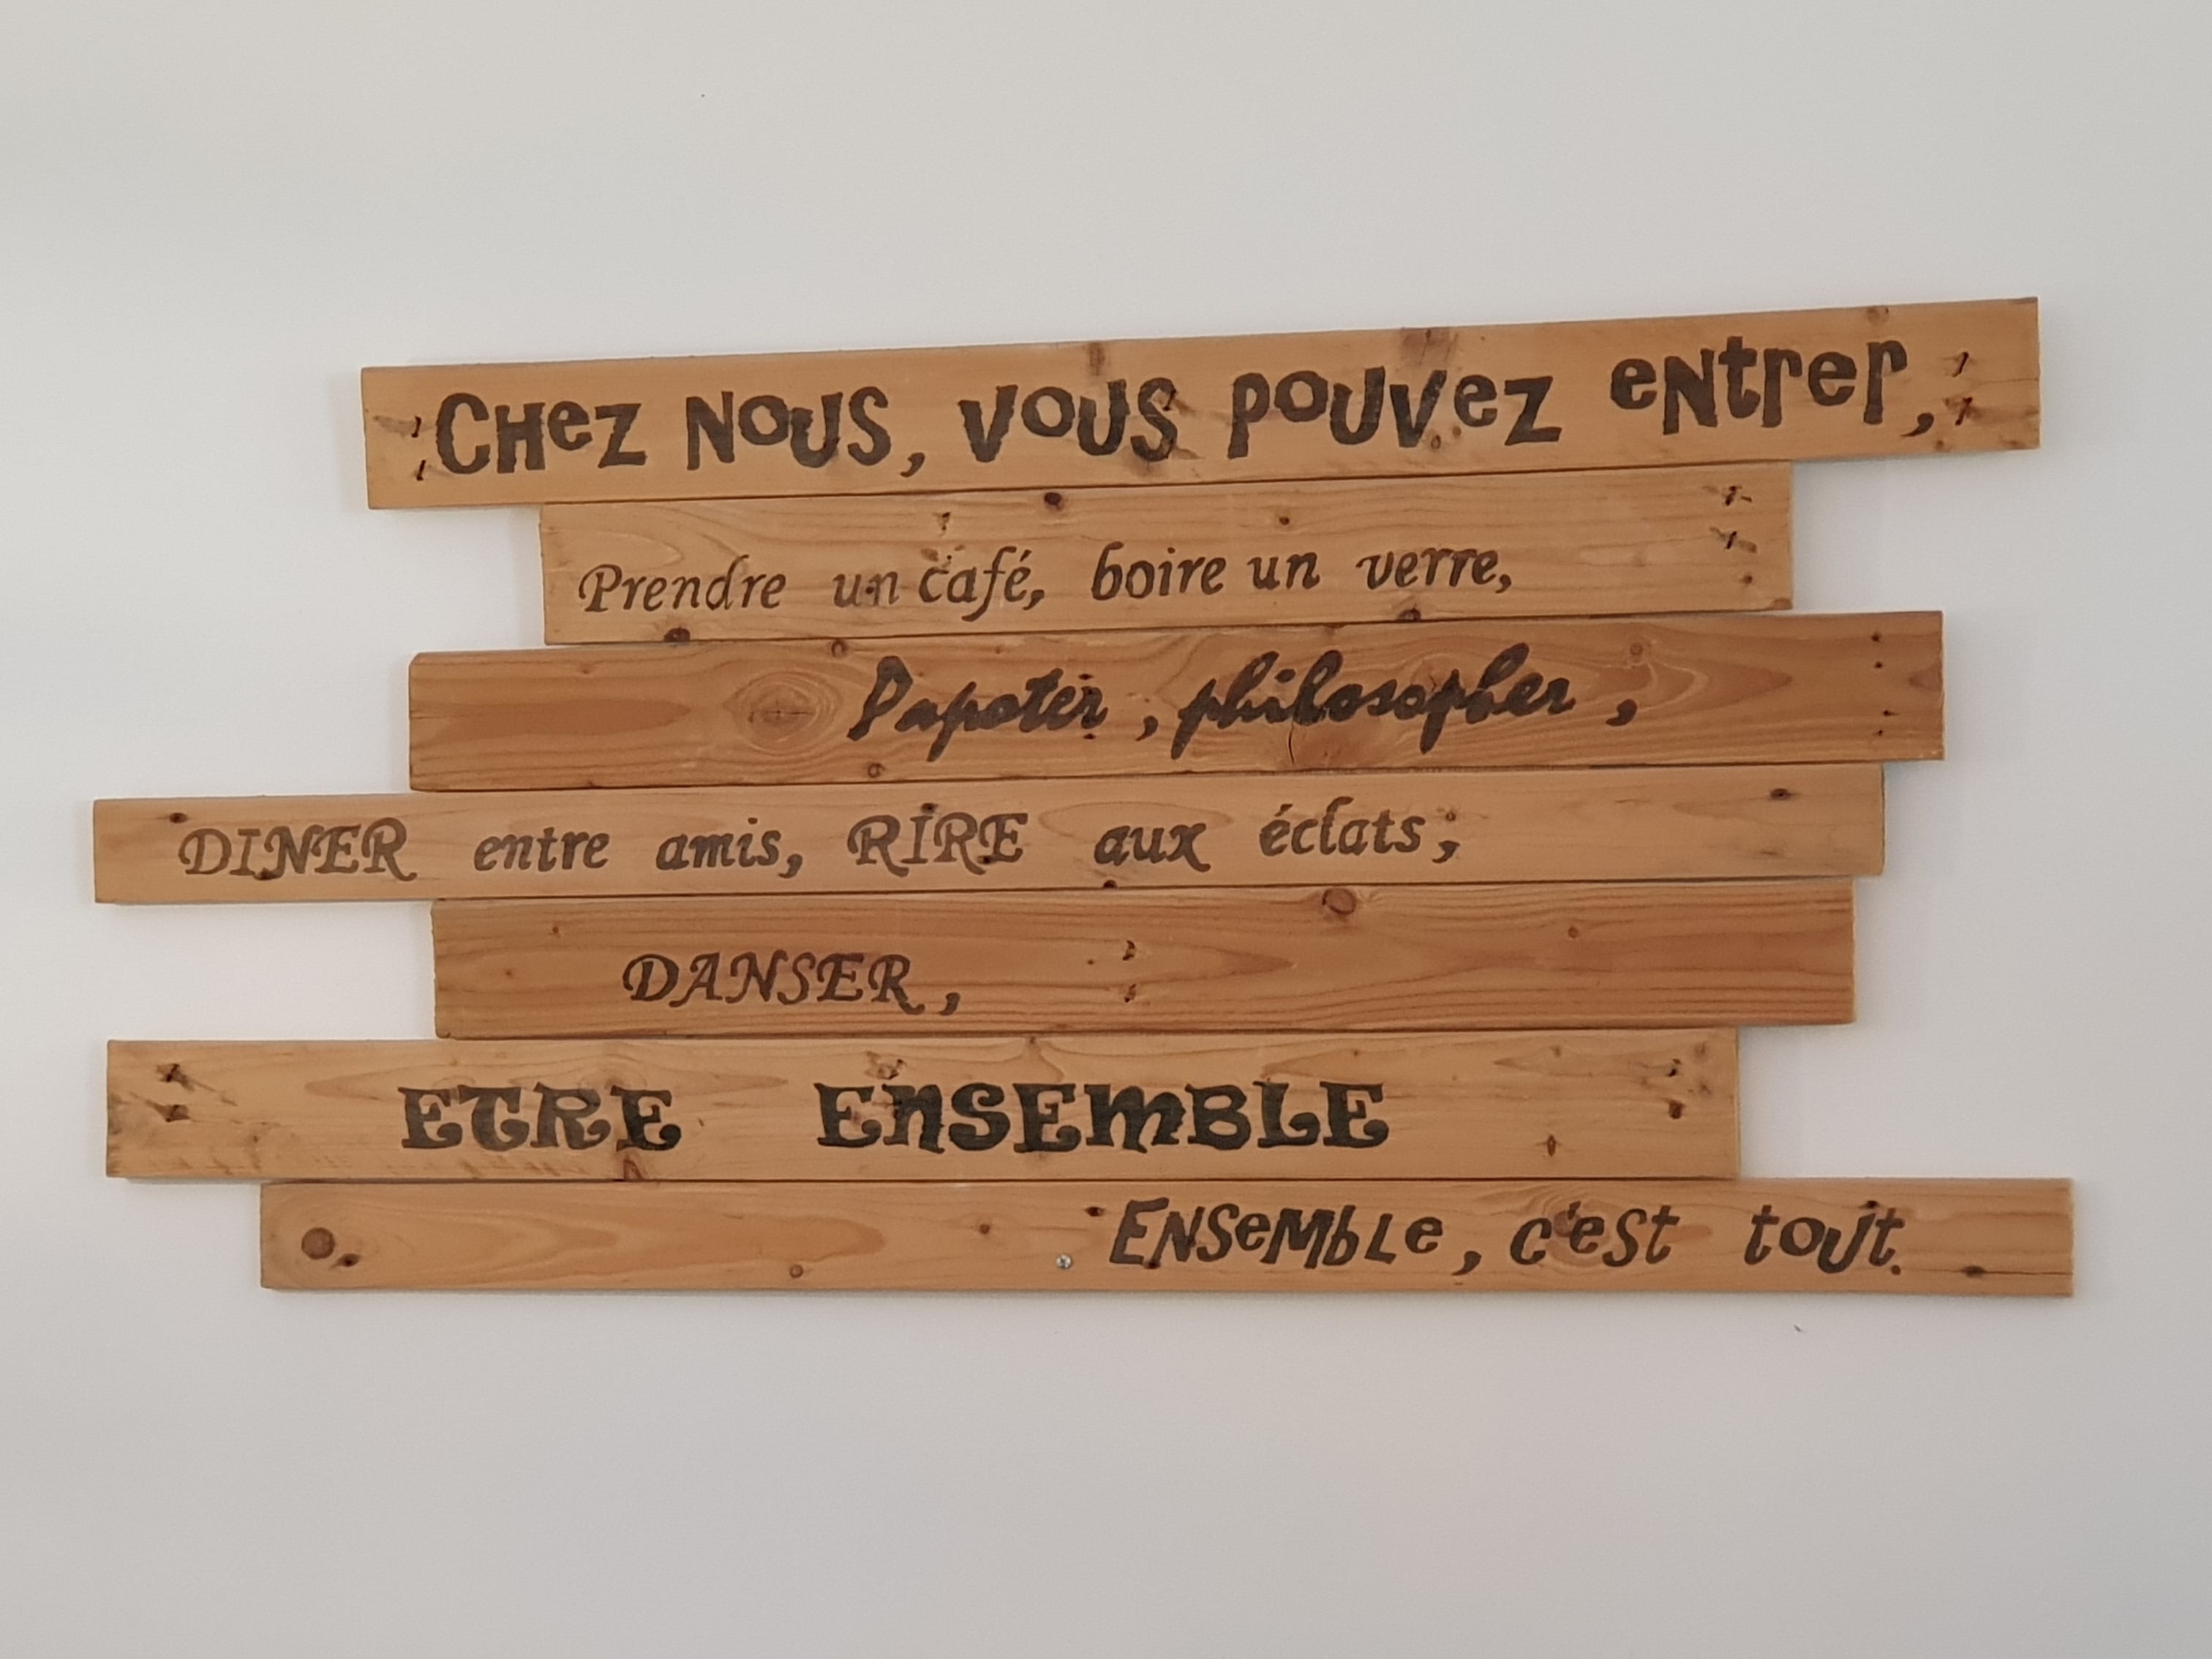 Chez NOUS, VOUS POUVEZ entrer,
Prendre un café, boire un verre,
Papoter, philosopher,
DINER entre amis, RIRE aux éclats,
DANSER,
ETRE ENSEMBLE
Ensemble, c'est tout.